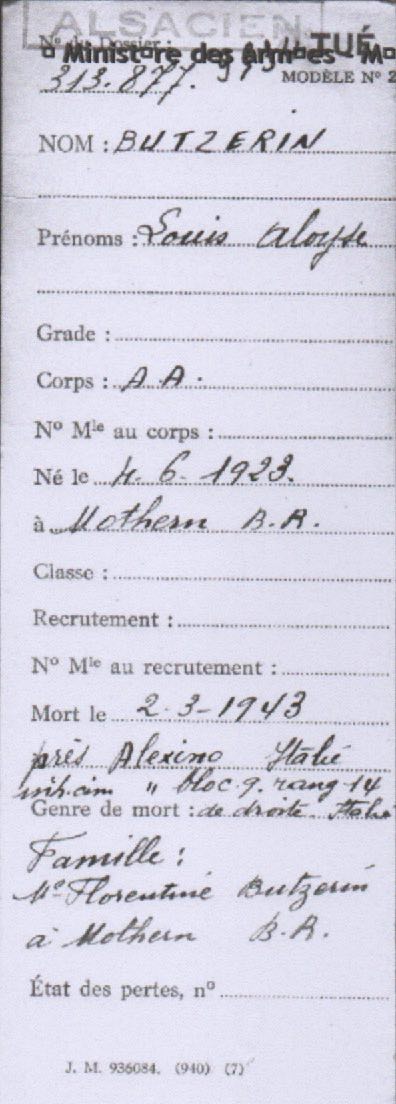 ALSACIEN
N° de Dossier :
¤ Minist¤re des arm¤es M¤
TUÉ
313.877.
MODÈLE N° 2
NOM : BUTZERIN
Prénoms : Louis Aloyse
Grade :
Corps : A A.
N° Mle au corps :
Né le 4. 6. 1923.
à Mothern B.R.
Classe :
Recrutement :
N° Mle au recrutement :
Mort le 2-3-1943
près Alexino Italie
inh. cim " bloc 9. rang 14
Genre de mort : de droite Italie
Famille :
Me Florentine Butzerin
à Mothern B.R.
État des pertes, n°
J. M. 936084. (940) (7)